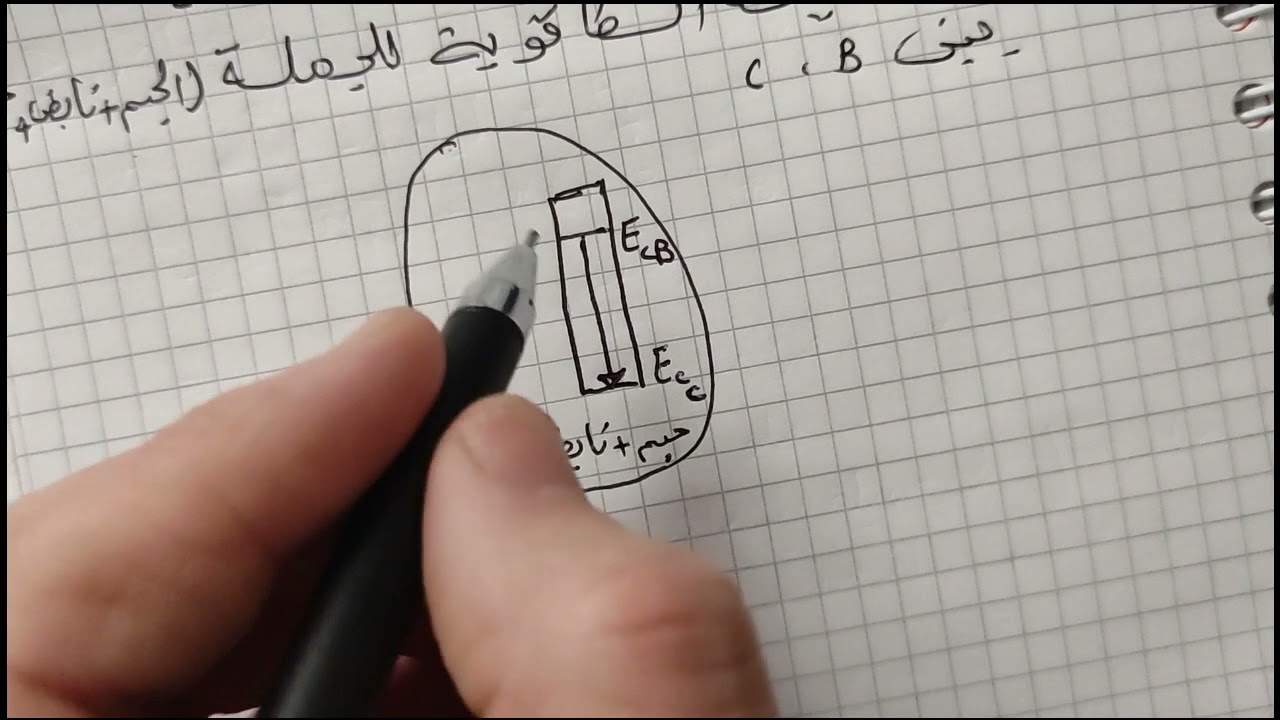 الطاقوية للجملة (الجسم+نابض+
بين B ، C
E_cB
E_cC
جسم+نابض